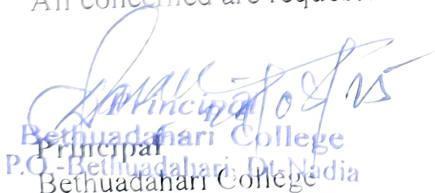 All concerned are request
Principal
Bethuadahari College
Principal
P.O.-Bethuadahari, Dt-Nadia
Bethuadahari College